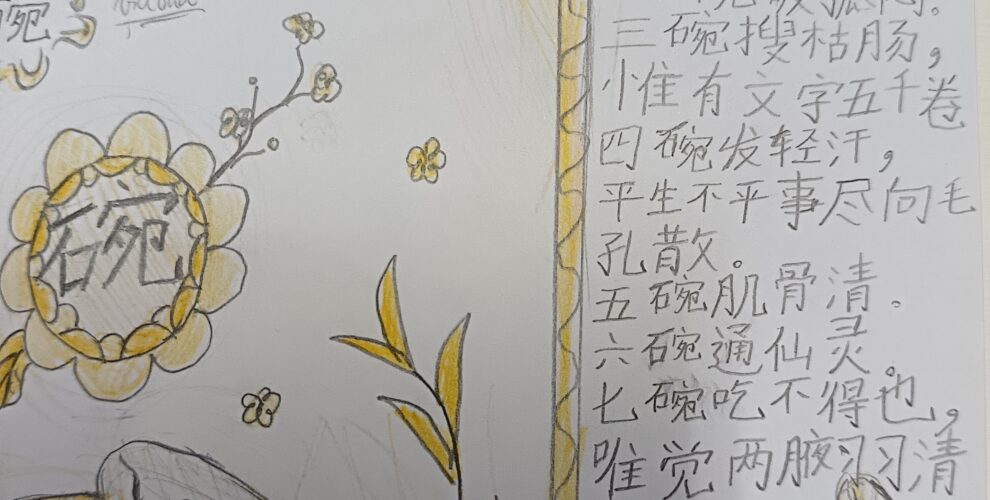 碗
碗
三碗搜枯肠，
惟有文字五千卷
四碗发轻汗，
平生不平事尽向毛
孔散。
五碗肌骨清。
六碗通仙灵。
七碗吃不得也，
唯觉两腋习习清